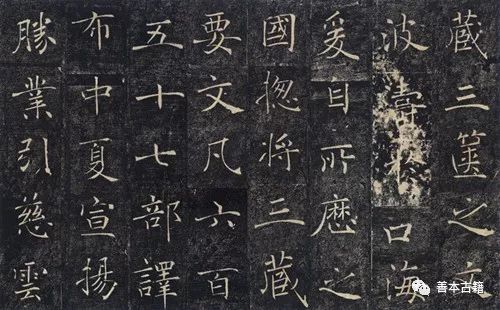 藏三篋之文
波濤於口海
爰自所歷之
國揔将三藏
要文凡六百
五十七部譯
布中夏宣揚
勝業引慈雲
善本古籍